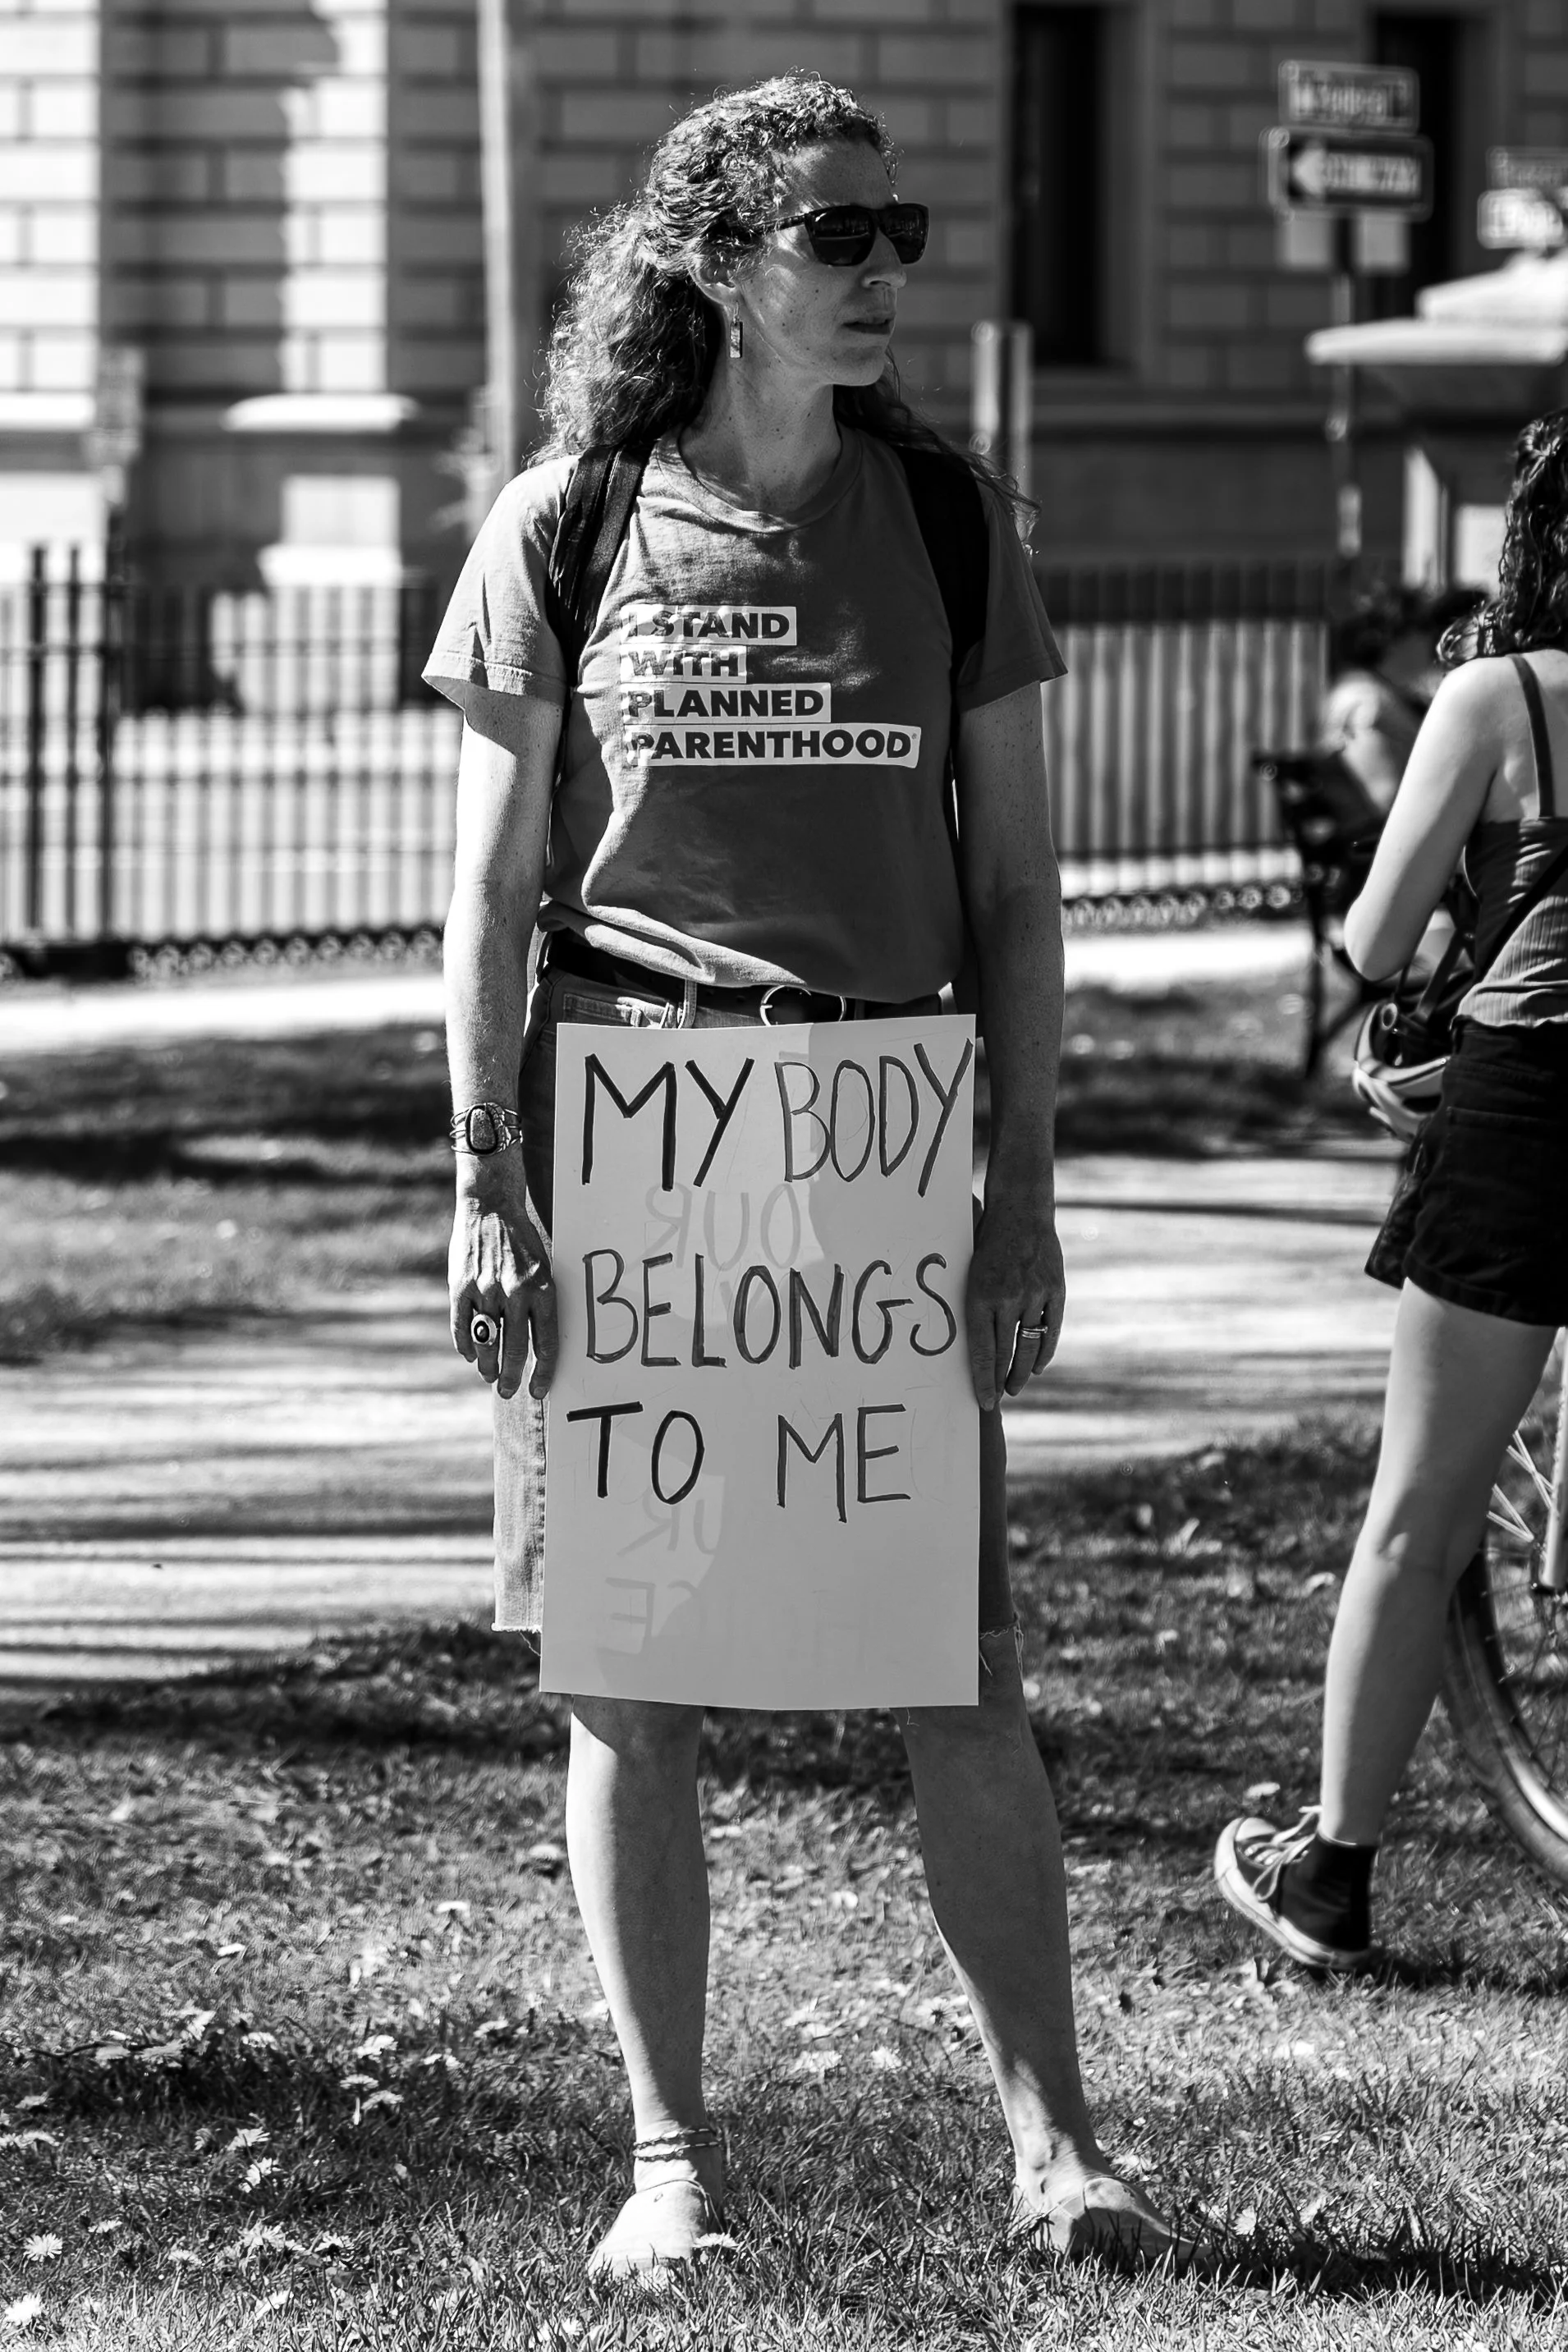 ONE WAY
I STAND
WITH
PLANNED
PARENTHOOD
MY BODY
BELONGS
TO ME
OUR